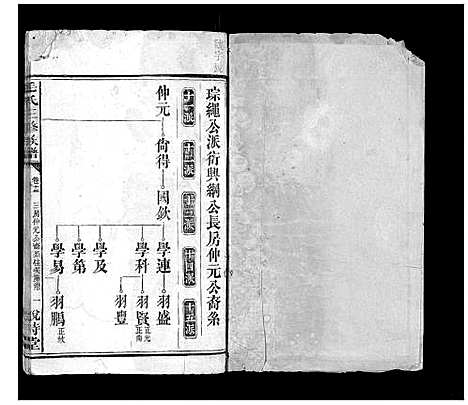 琮繩公派衍興綱公長房仲元公裔系
十一派
十二派
十三派
十四派
十五派
仲元
尙得
國欽
學連
羽盛
學科
羽賢
正元
正南
羽豐
學及
學第
學易
羽鵬
正坟
氏三修族譜
一
悅時堂